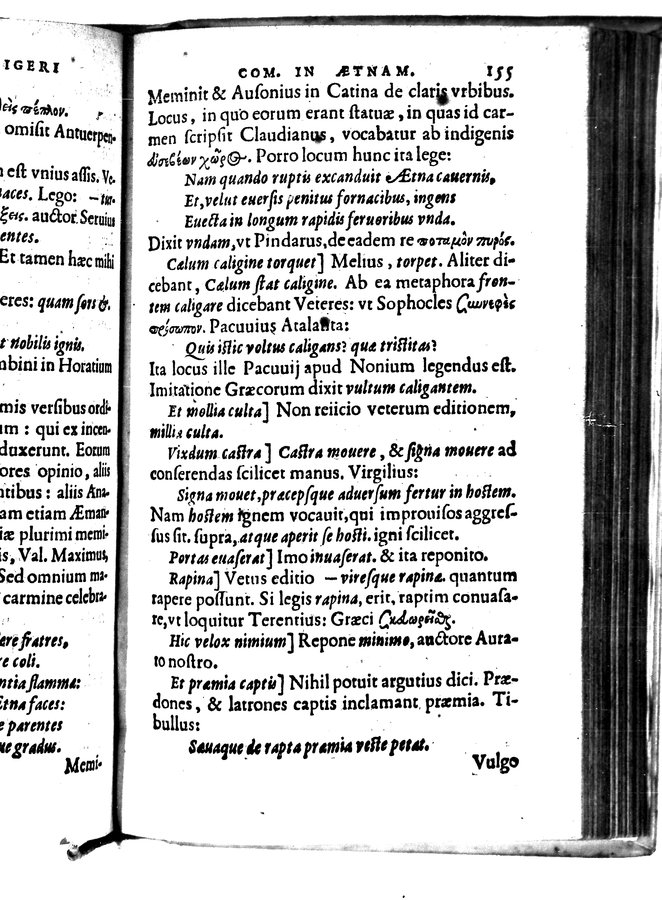 IGERI
πέπλον.
omisit Antuerpen-
est vnius assis. Ve-
faces. Lego: — tur-
auctor. Seruius
entes.
Et tamen hæc mihi
eres: quam fors &.
t nobilis ignis.
mbini in Horatium
mis versibus ordi-
um: qui ex incen-
duxerunt. Eorum
ores opinio, alii
ntibus: aliis Ana-
am etiam Æman-
iæ plurimi memi-
is, Val. Maximus,
Sed omnium ma-
carmine celebra-
ere fratres,
re coli.
ntia flamma:
Etna faces:
e parentes
ue gradus.
Memi-
COM. IN ÆTNAM. 155
Meminit & Ausonius in Catina de claris vrbibus.
Locus, in quo eorum erant statuæ, in quas id car-
men scripsit Claudianus, vocabatur ab indigenis
εὐσεβέων χῶρος. Porro locum hunc ita lege:
Nam quando ruptis excanduit Ætna cauernis,
Et, velut euersis penitus fornacibus, ingens
Euecta in longum rapidis feruoribus vnda.
Dixit vndam, vt Pindarus, de eadem re ποταμὸν πυρός.
Cælum caligine torquet] Melius, torpet. Aliter di-
cebant, Cælum stat caligine. Ab ea metaphora fron-
tem caligare dicebant Veteres: vt Sophocles συννεφὲς
πρόσωπον. Pacuuius Atalanta:
Quis istic voltus caligans? quæ tristitas?
Ita locus ille Pacuuij apud Nonium legendus est.
Imitatione Græcorum dixit vultum caligantem.
Et mollia culta] Non reiicio veterum editionem,
millia culta.
Vixdum castra] Castra mouere, & signa mouere ad
conserendas scilicet manus. Virgilius:
Signa mouet, præcepsque aduersum fertur in hostem.
Nam hostem ignem vocauit, qui improuisos aggres-
sus sit. supra, atque aperit se hosti. igni scilicet.
Portas euaserat] Imo inuaserat. & ita reponito.
Rapina] Vetus editio — viresque rapina. quantum
rapere possunt. Si legis rapina, erit, raptim conuasa-
re, vt loquitur Terentius: Græci
Hic velox nimium] Repone minimo, auctore Aura-
to nostro.
Et præmia captis] Nihil potuit argutius dici. Præ-
dones, & latrones captis inclamant præmia. Ti-
bullus:
Sæuaque de rapta præmia veste petat.
Vulgo